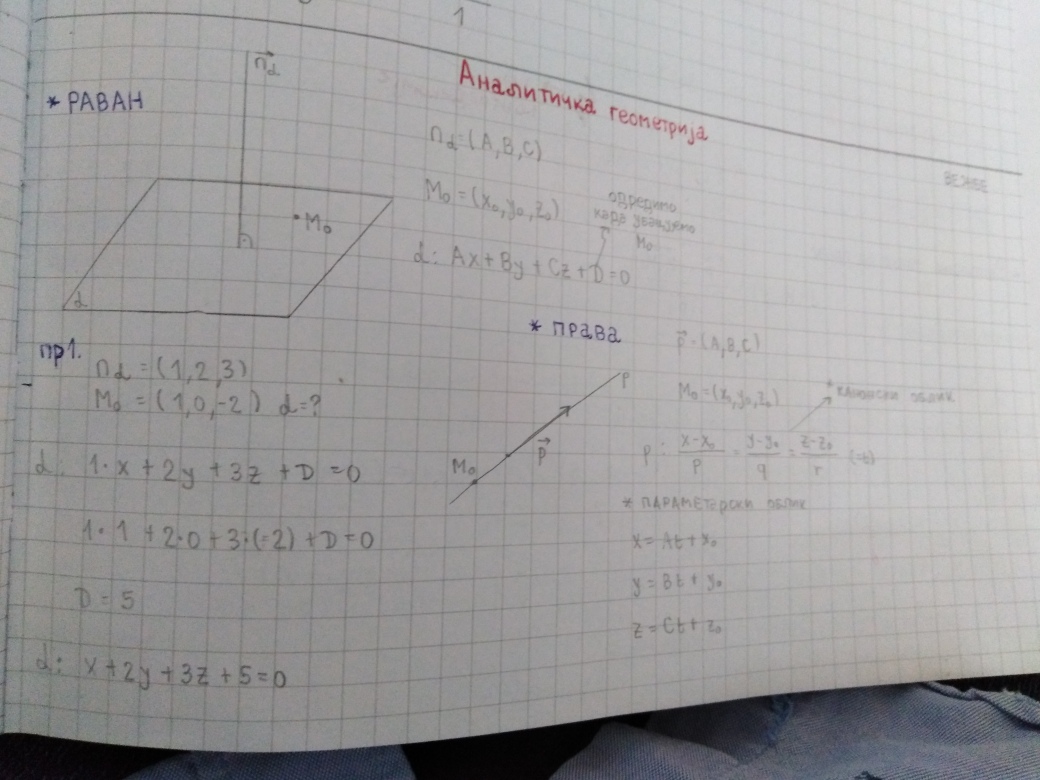 1
Аналитичка геометрија
ВЕЖБЕ
* РАВАН
n⃗α
n⃗α = (A, B, C)
M₀ = (x₀, y₀, z₀)
одредимо
када уврстимо
M₀
α: Ax + By + Cz + D = 0
• M₀
α
пр1.
nα = (1, 2, 3)
M₀ = (1, 0, -2) α=?
α: 1·x + 2y + 3z + D = 0
1·1 + 2·0 + 3·(-2) + D = 0
D = 5
α: x + 2y + 3z + 5 = 0
* ПРАВА
p⃗ = (A, B, C)
M₀ = (x₀, y₀, z₀)
* КАНОНСКИ ОБЛИК
p
p⃗
M₀
p: (x-x₀)/p = (y-y₀)/q = (z-z₀)/r (=t)
* ПАРАМЕТАРСКИ ОБЛИК
x = At + x₀
y = Bt + y₀
z = Ct + z₀